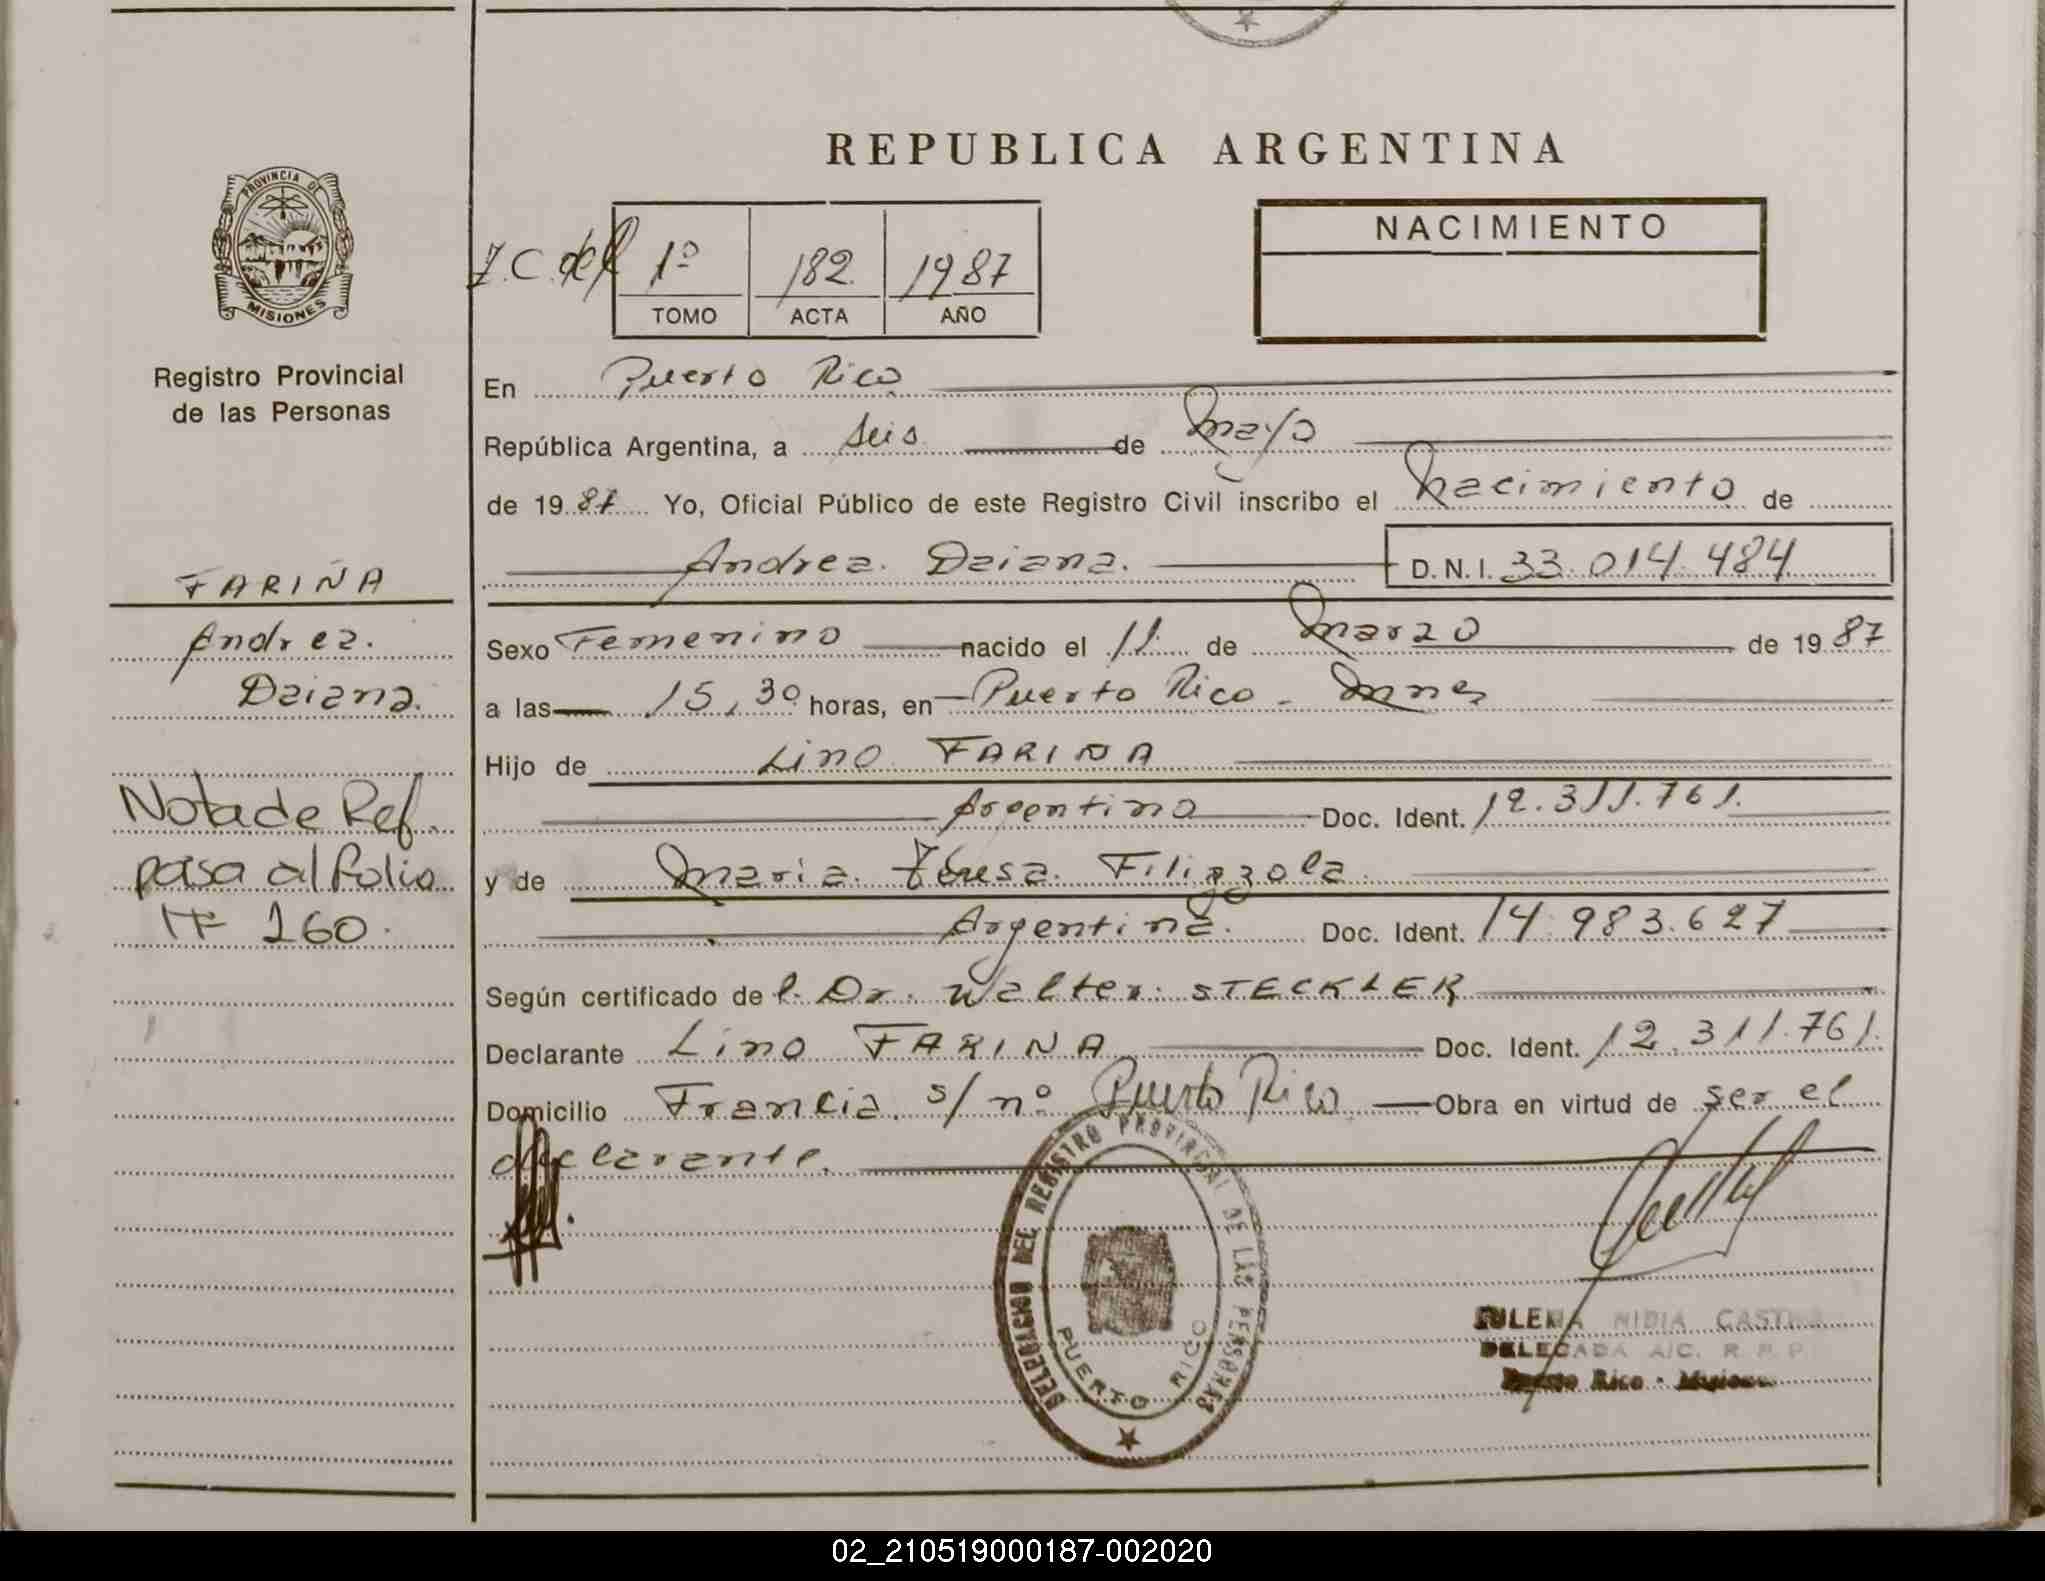 REPUBLICA ARGENTINA
PROVINCIA DE
MISIONES
Registro Provincial
de las Personas
FARIÑA
Andrea
Daiana.
Nota de Ref.
pasa al folio
Nº 160.
1º 182 1987
TOMO ACTA AÑO
NACIMIENTO
En Puerto Rico
República Argentina, a seis de Mayo
de 19 87 Yo, Oficial Público de este Registro Civil inscribo el Nacimiento de
Andrea Daiana. D.N.I. 33.014.484
Sexo Femenino nacido el 11 de Marzo de 19 87
a las 15,30 horas, en Puerto Rico - Mnes
Hijo de Lino FARIÑA
Argentino Doc. Ident. 12.311.761.
y de Maria Teresa Filizzola
Argentina. Doc. Ident. 14.983.627
Según certificado de l. Dr. Walter STECKLER
Declarante Lino FARIÑA Doc. Ident. 12.311.761.
Domicilio Francia s/nº Puerto Rico Obra en virtud de ser el
declarante.
DELEGACION DEL REGISTRO PROVINCIAL DE LAS PERSONAS
PUERTO RICO
NIDIA
DELEGADA A/C. R. P. P.
Puerto Rico - Misiones
02_210519000187-002020